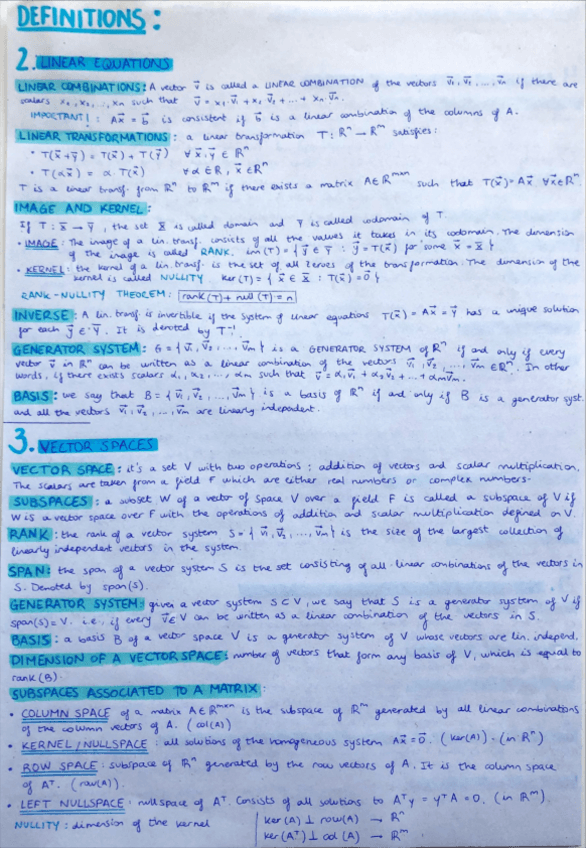 DEFINITIONS:
2. LINEAR EQUATIONS
LINEAR COMBINATIONS: A vector v⃗ is called a LINEAR COMBINATION of the vectors v⃗₁, v⃗₂, ..., v⃗ₙ if there are
scalars x₁, x₂, ..., xₙ such that v⃗ = x₁·v⃗₁ + x₂ v⃗₂ + ... + xₙ v⃗ₙ.
IMPORTANT!: Ax⃗ = b⃗ is consistent if b⃗ is a linear combination of the columns of A.
LINEAR TRANSFORMATIONS: a linear transformation T: ℝⁿ → ℝᵐ satisfies:
• T(x⃗+y⃗) = T(x⃗) + T(y⃗) ∀ x⃗, y⃗ ∈ ℝⁿ
• T(αx⃗) = α T(x⃗) ∀ α ∈ ℝ, x⃗ ∈ ℝⁿ
T is a linear transf. from ℝⁿ to ℝᵐ if there exists a matrix A∈ℝᵐˣⁿ such that T(x⃗)=Ax⃗ ∀x⃗∈ℝⁿ.
IMAGE AND KERNEL:
If T: X → Y, the set X is called domain and Y is called codomain of T.
• IMAGE: The image of a lin. transf. consists of all the values it takes in its codomain. The dimension
of the image is called RANK. im(T) = { y⃗ ∈ Y : y⃗ = T(x⃗) for some x⃗ ∈ X }
• KERNEL: the kernel of a lin. transf. is the set of all zeroes of the transformation. The dimension of the
kernel is called NULLITY. ker(T) = { x⃗ ∈ X : T(x⃗) = 0⃗ }
RANK-NULLITY THEOREM: rank(T) + null(T) = n
INVERSE: A lin. transf is invertible if the system of linear equations T(x⃗) = Ax⃗ = y⃗ has a unique solution
for each y⃗ ∈ Y. It is denoted by T⁻¹.
GENERATOR SYSTEM: G = { v⃗₁, v⃗₂, ..., v⃗ₘ } is a GENERATOR SYSTEM of ℝⁿ if and only if every
vector v⃗ in ℝⁿ can be written as a linear combination of the vectors v⃗₁, v⃗₂, ..., v⃗ₘ ∈ ℝⁿ. In other
words, if there exists scalars α₁, α₂, ..., αₘ such that v⃗ = α₁v⃗₁ + α₂v⃗₂ + ... + αₘv⃗ₘ.
BASIS: we say that B = { v⃗₁, v⃗₂, ..., v⃗ₘ } is a basis of ℝⁿ if and only if B is a generator syst.
and all the vectors v⃗₁, v⃗₂, ..., v⃗ₘ are linearly independent.
3. VECTOR SPACES
VECTOR SPACE: it's a set V with two operations: addition of vectors and scalar multiplication.
The scalars are taken from a field F which are either real numbers or complex numbers.
SUBSPACES: a subset W of a vector of space V over a field F is called a subspace of V if
W is a vector space over F with the operations of addition and scalar multiplication defined on V.
RANK: the rank of a vector system S = { v⃗₁, v⃗₂, ..., v⃗ₘ } is the size of the largest collection of
linearly independent vectors in the system.
SPAN: the span of a vector system S is the set consisting of all linear combinations of the vectors in
S. Denoted by span(S).
GENERATOR SYSTEM: given a vector system S ⊂ V, we say that S is a generator system of V if
span(S) = V. i.e., if every v⃗ ∈ V can be written as a linear combination of the vectors in S.
BASIS: a basis B of a vector space V is a generator system of V whose vectors are lin. independ.
DIMENSION OF A VECTOR SPACE: number of vectors that form any basis of V, which is equal to
rank(B).
SUBSPACES ASSOCIATED TO A MATRIX:
• COLUMN SPACE of a matrix A∈ℝᵐˣⁿ is the subspace of ℝᵐ generated by all linear combinations
of the column vectors of A. (col(A))
• KERNEL/NULLSPACE: all solutions of the homogeneous system Ax⃗ = 0⃗. (ker(A)) - (in ℝⁿ)
• ROW SPACE: subspace of ℝⁿ generated by the row vectors of A. It is the column space
of Aᵀ. (row(A)).
• LEFT NULLSPACE: nullspace of Aᵀ. Consists of all solutions to Aᵀy = yᵀA = 0. (in ℝᵐ)
NULLITY: dimension of the kernel
ker(A) ⊥ row(A) → ℝⁿ
ker(Aᵀ) ⊥ col(A) → ℝᵐ